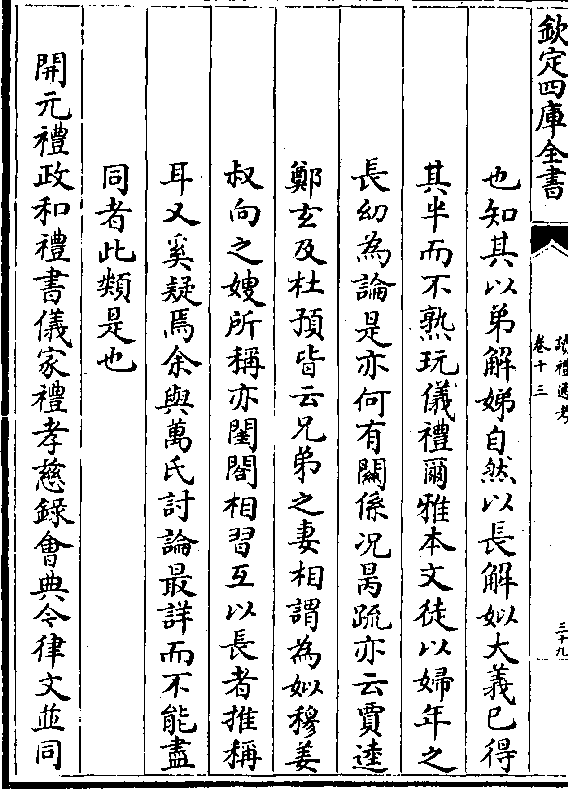 欽定四庫全書
讀禮通考
卷十三
三十九
也知其以弟解娣自然以長解姒大義已得
其半而不熟玩儀禮爾雅本文徒以婦年之
長幼為論是亦何有關係况昺疏亦云賈逵
鄭玄及杜預皆云兄弟之妻相謂為姒穆姜
叔向之嫂所稱亦閨閤相習互以長者推稱
耳又奚疑焉余與萬氏討論最詳而不能盡
同者此類是也
開元禮政和禮書儀家禮孝慈錄會典今律文並同